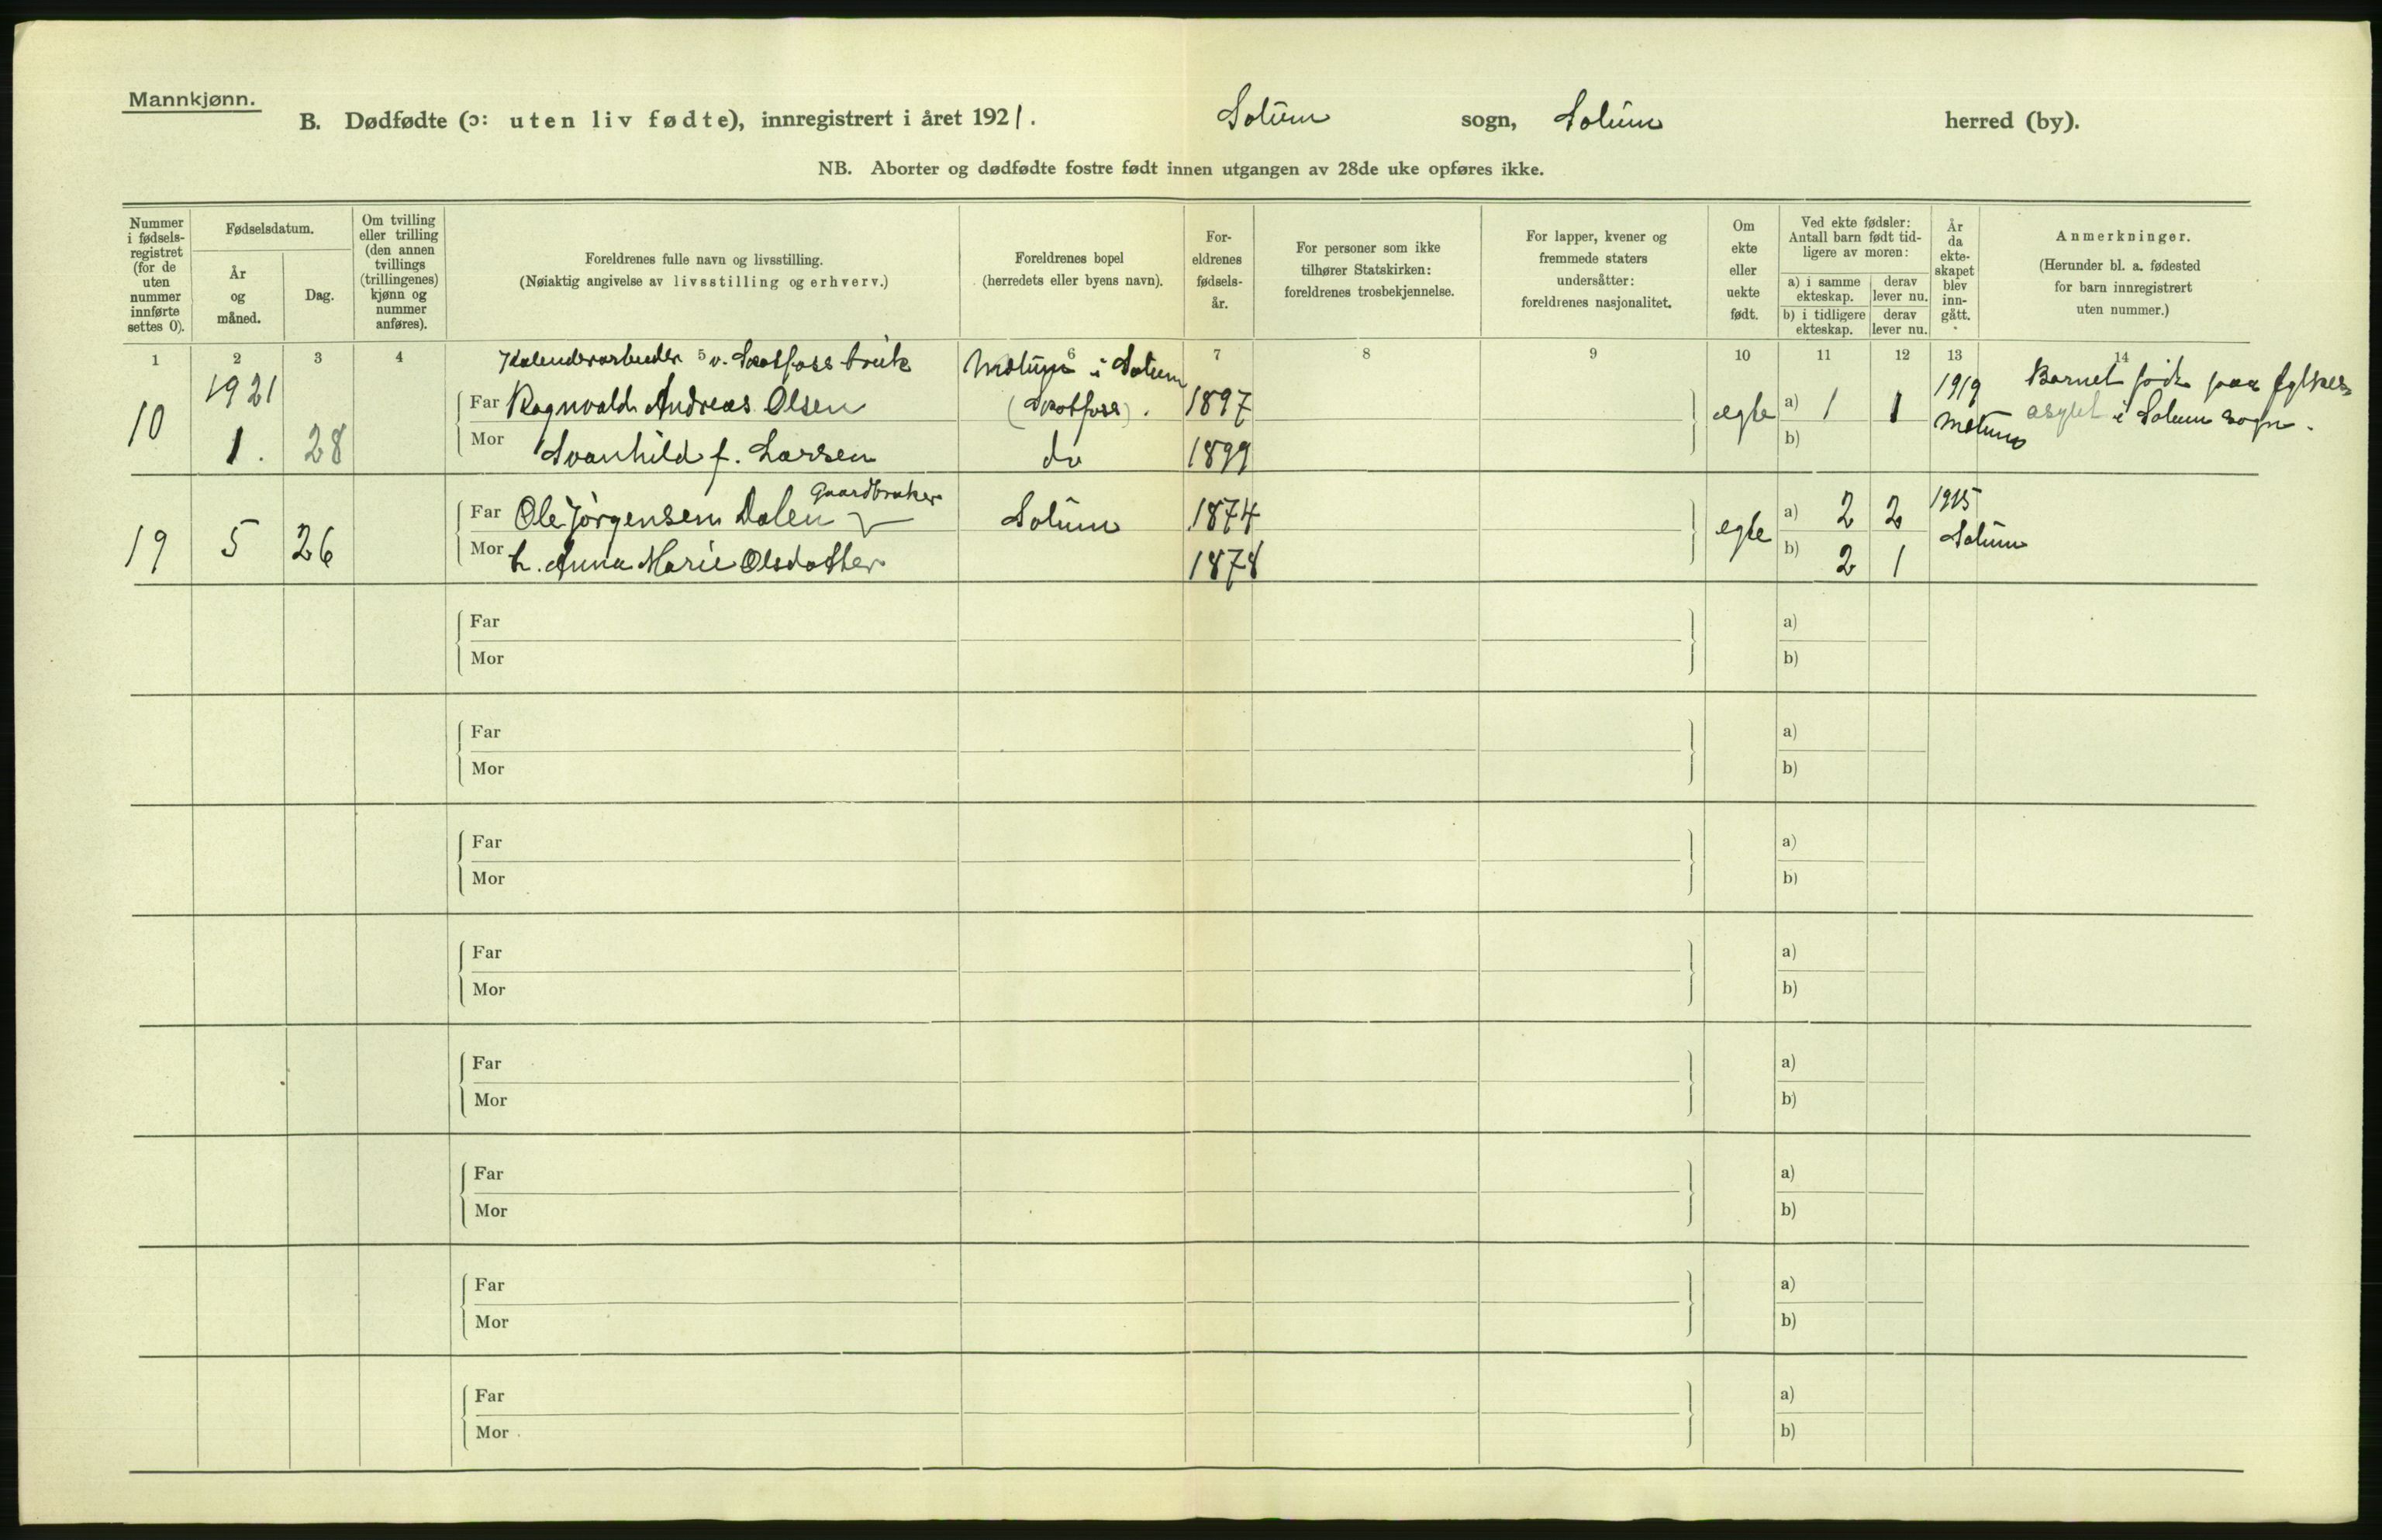 Mannkjønn.
B. Dødfødte (ɔ: uten liv fødte), innregistrert i året 1921. Solum sogn, Solum herred (by).
NB. Aborter og dødfødte fostre født innen utgangen av 28de uke opføres ikke.
Nummer i fødsels-registret (for de uten nummer innførte settes 0).
Fødselsdatum.
År og måned.
Dag.
Om tvilling eller trilling (den annen tvillings (trillingenes) kjønn og nummer anføres).
Foreldrenes fulle navn og livsstilling.
(Nøiaktig angivelse av livsstilling og erhverv.)
Foreldrenes bopel
(herredets eller byens navn).
For-eldrenes fødsels-år.
For personer som ikke tilhører Statskirken: foreldrenes trosbekjennelse.
For lapper, kvener og fremmede staters undersåtter: foreldrenes nasjonalitet.
Om ekte eller uekte født.
Ved ekte fødsler: Antall barn født tid-ligere av moren:
a) i samme ekteskap.
derav lever nu.
b) i tidligere ekteskap.
derav lever nu.
År da ekte-skapet blev inn-gått.
Anmerkninger.
(Herunder bl. a. fødested for barn innregistrert uten nummer.)
1 2 3 4 5 6 7 8 9 10 11 12 13 14
Kalenderarbeider v. Skotfoss bruk Melum i Solum
10 1921 1. 28 Far Ragnvald Andreas Olsen (Skotfoss). 1897 egte a) 1 1 1919 Melum Barnet født paa fylkes
asylet i Solum sogn.
Mor Svanhild f. Larsen do 1899 b)
Gaardbruker
19 5 26 Far Ole Jörgensen Dalen Solum 1874 egte a) 2 2 1915 Solum
Mor h. Anna Marie Olsdatter 1878 b) 2 1
Far a)
Mor b)
Far a)
Mor b)
Far a)
Mor b)
Far a)
Mor b)
Far a)
Mor b)
Far a)
Mor b)
Far a)
Mor b)
Far a)
Mor b)